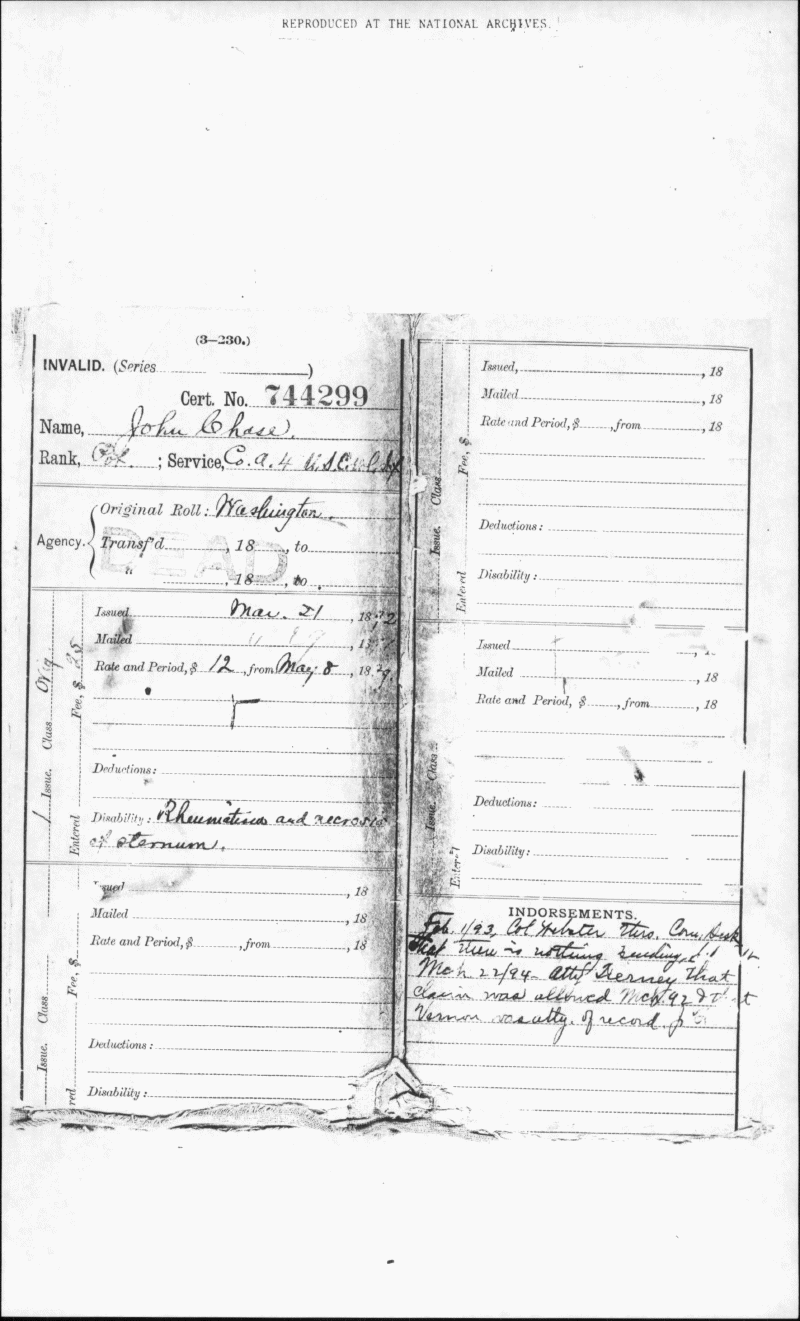 REPRODUCED AT THE NATIONAL ARCHIVES.
(3—230.)
INVALID. (Series )
Cert. No. 744299
Name, John Chase.
Rank, ; Service, Co. A. 4 U.S.C.
Agency. Original Roll: Washington.
Transf'd , 18 , to
DEAD
" , 18 , to .
1 Issue. Class Orig
Entered Fee, $ 25
Issued Mar. 21 , 1892
Mailed
Rate and Period, $ 12 , from May 8 , 18
Deductions:
Disability: Rheumatism and necrosis
of sternum.
Issue. Class
Fee, $
Issued , 18
Mailed , 18
Rate and Period, $ , from , 18
Deductions:
Disability:
Issue. Class
Entered Fee, $
Issued, , 18
Mailed , 18
Rate and Period, $ , from , 18
Deductions:
Disability:
Issue Class
Issued
Mailed , 18
Rate and Period, $ , from , 18
Deductions:
Disability:
INDORSEMENTS.
Feb. 1/93, Col Webster thro. Com.
that there is nothing pending.
Mch 22/94 - Atty Tierney that
claim was allowed Mch 92 &
Vernon was atty. of record.